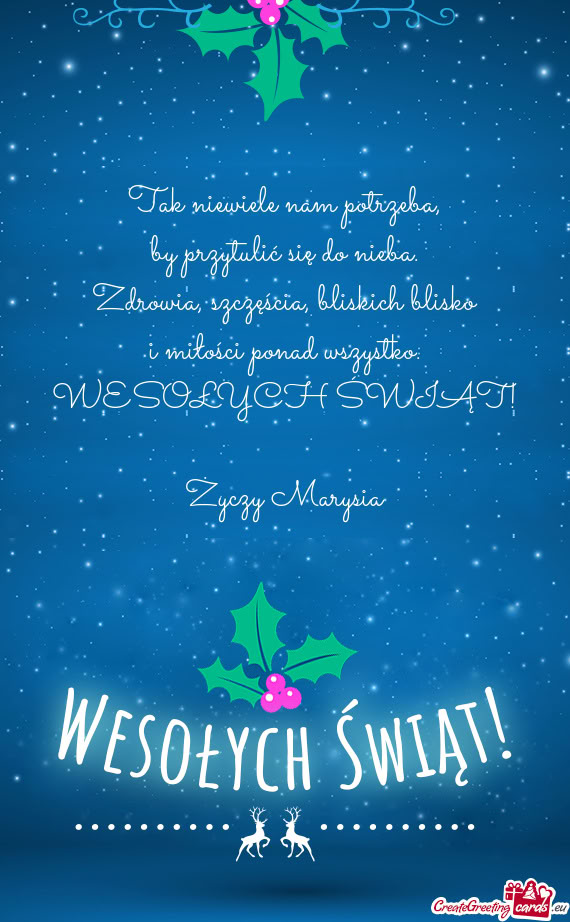 Tak niewiele nam potrzeba,
by przytulić się do nieba.
Zdrowia, szczęścia, bliskich blisko
i miłości ponad wszystko.
WESOŁYCH ŚWIĄT!
Życzy Marysia
Wesołych Świąt!
CreateGreetingcards.eu